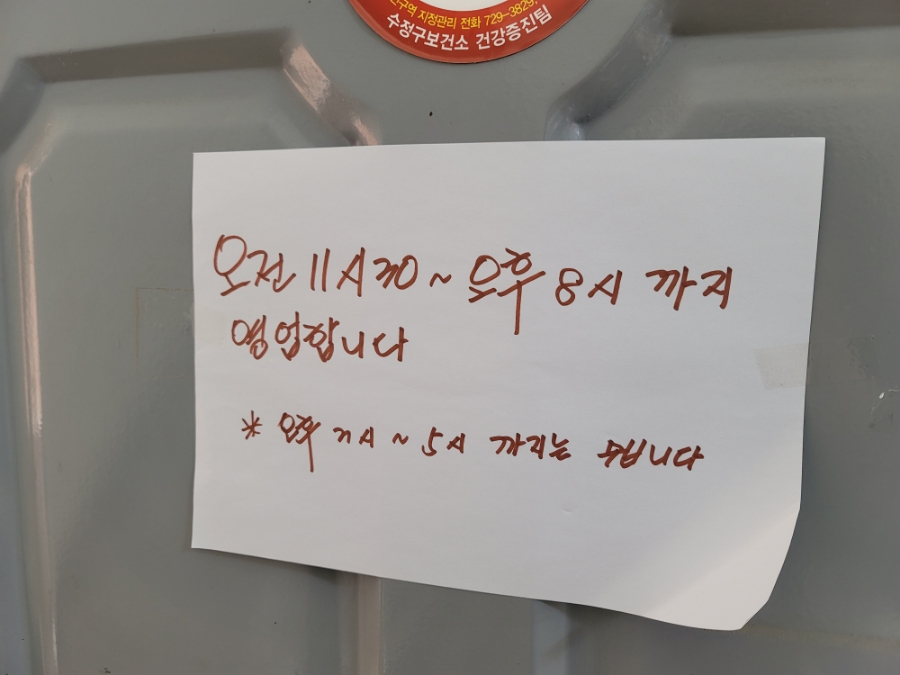 구역 지정관리 전화 729-3829
수정구보건소 건강증진팀
오전 11시30 ~ 오후 8시 까지
영업합니다
* 오후 3시 ~ 5시 까지는 쉽니다